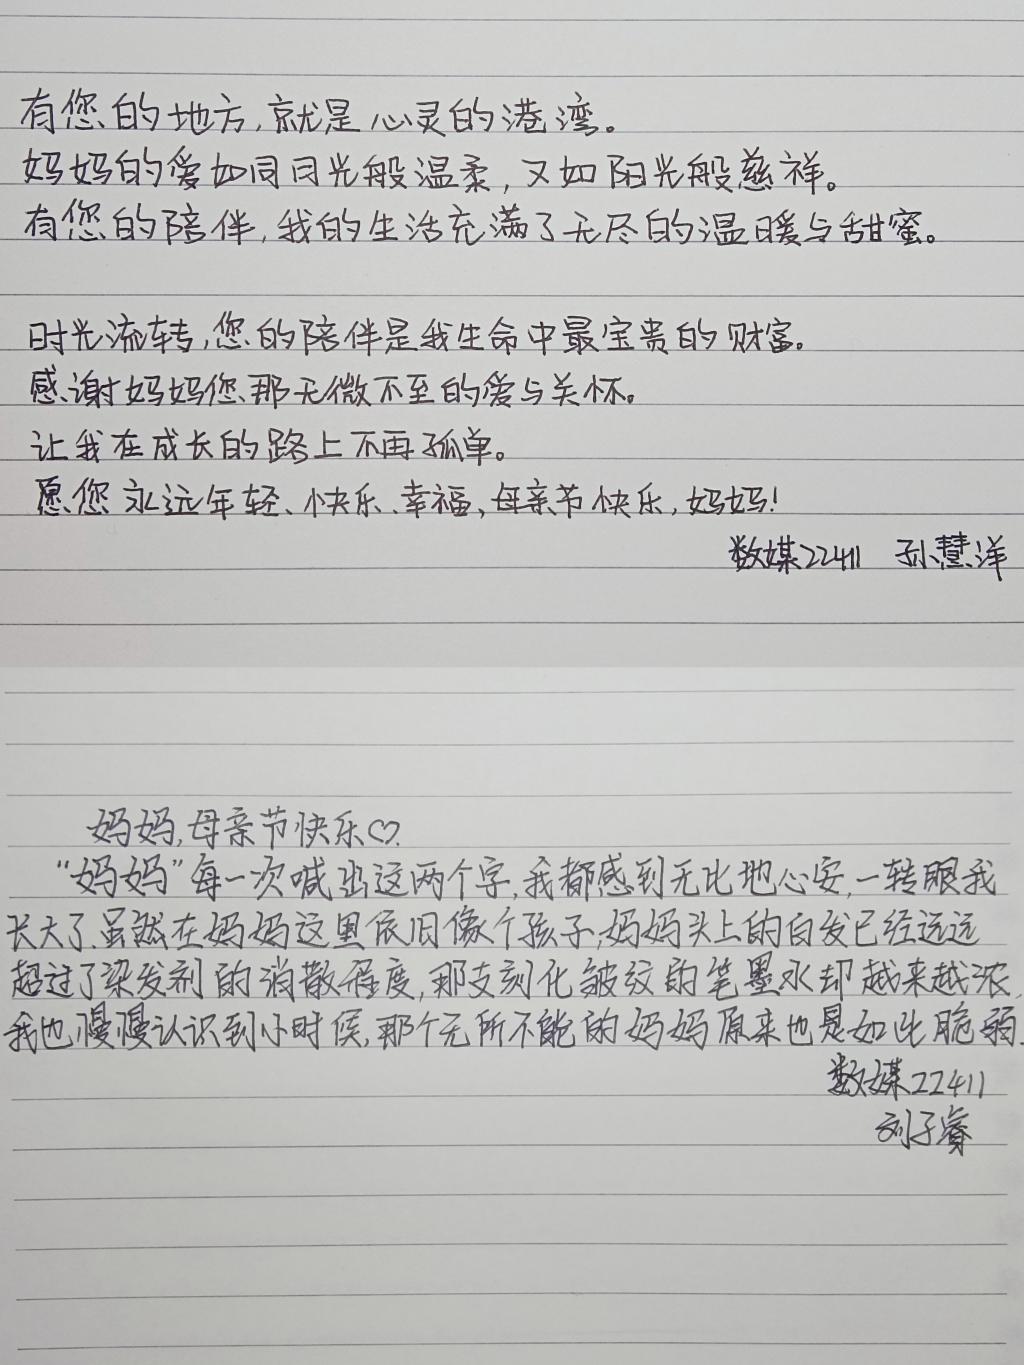 有您的地方,就是心灵的港湾。
妈妈的爱如同月光般温柔,又如阳光般慈祥。
有您的陪伴,我的生活充满了无尽的温暖与甜蜜。
时光流转,您的陪伴是我生命中最宝贵的财富。
感谢妈妈您那无微不至的爱与关怀。
让我在成长的路上不再孤单。
愿您永远年轻、快乐、幸福,母亲节快乐,妈妈!
数媒22411 孙慧洋
妈妈,母亲节快乐♡.
“妈妈”每一次喊出这两个字,我都感到无比地心安,一转眼我
长大了.虽然在妈妈这里依旧像个孩子,妈妈头上的白发已经远远
超过了染发剂的消散程度,那支刻化皱纹的笔墨水却越来越浓,
我也慢慢认识到小时候,那个无所不能的妈妈原来也是如此脆弱.
数媒22411
刘子睿